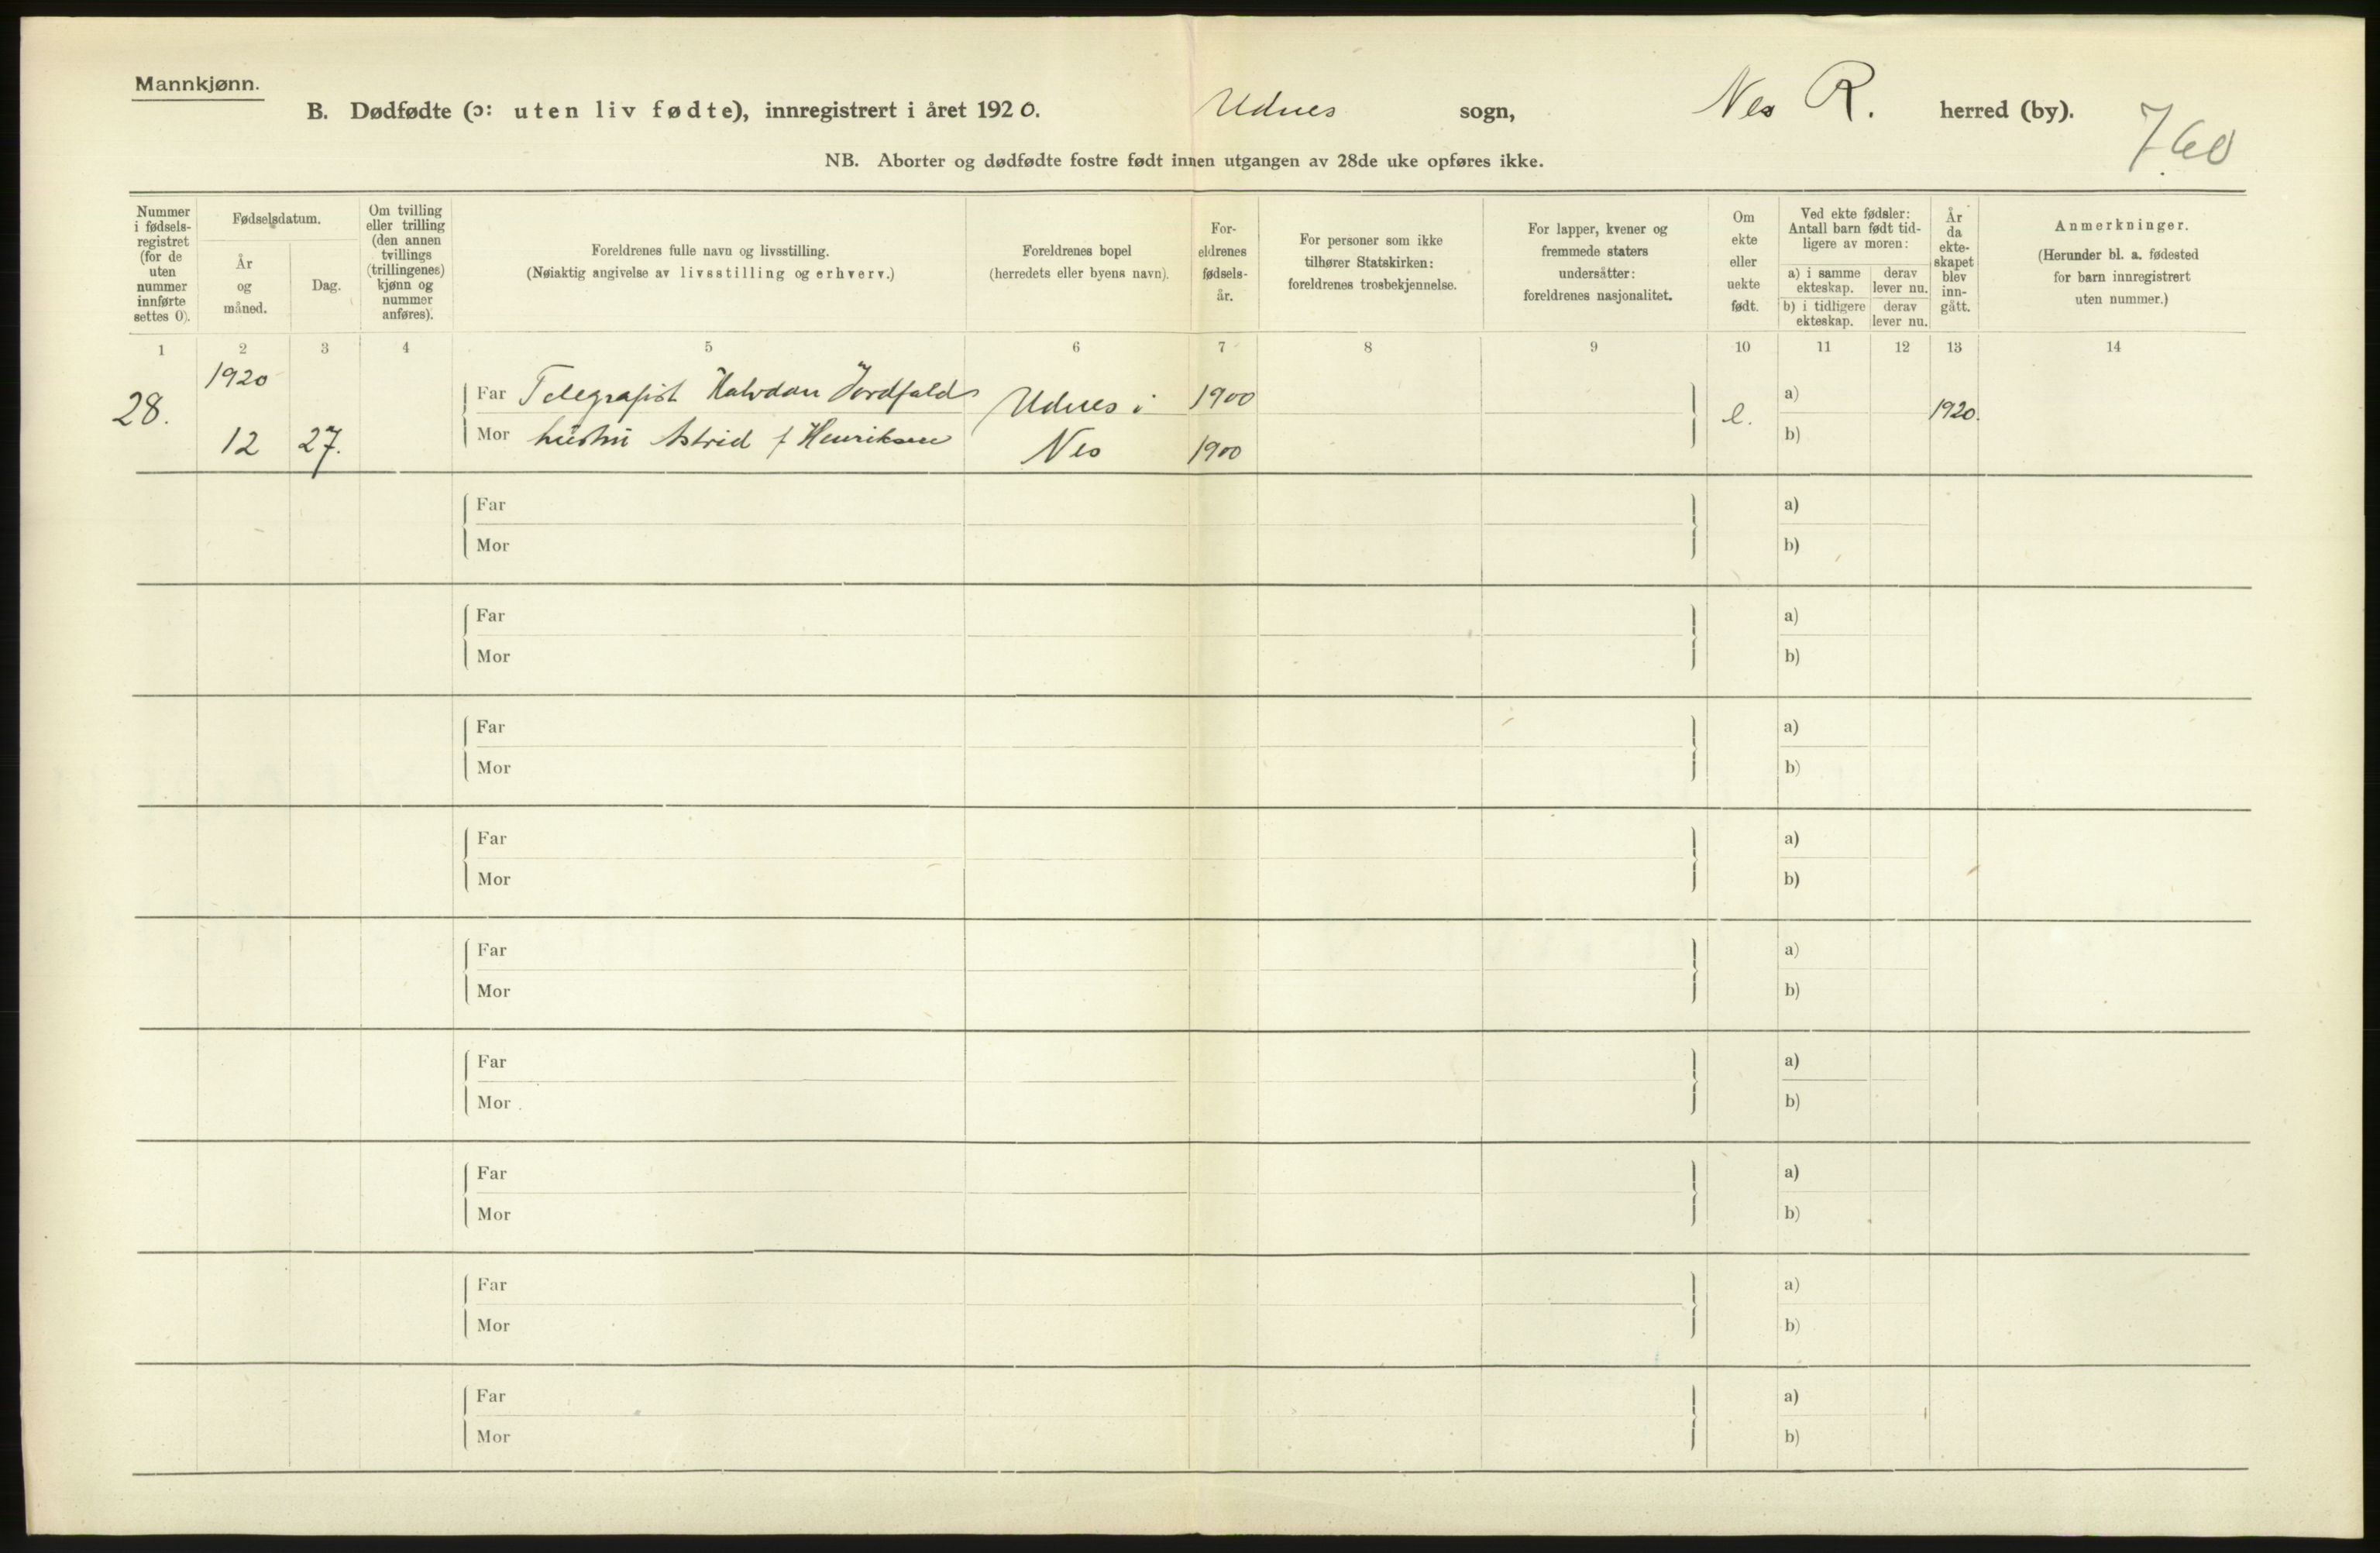 Mannkjønn.
B. Dødfødte (ɔ: uten liv fødte), innregistrert i året 1920. Udnes sogn, Nes R. herred (by).
760
NB. Aborter og dødfødte fostre født innen utgangen av 28de uke opføres ikke.
Nummer i fødsels-registret (for de uten nummer innførte settes 0).
Fødselsdatum.
År og måned.
Dag.
Om tvilling eller trilling (den annen tvillings (trillingenes) kjønn og nummer anføres).
Foreldrenes fulle navn og livsstilling.
(Nøiaktig angivelse av livsstilling og erhverv.)
Foreldrenes bopel
(herredets eller byens navn).
For-eldrenes fødsels-år.
For personer som ikke tilhører Statskirken: foreldrenes trosbekjennelse.
For lapper, kvener og fremmede staters undersåtter: foreldrenes nasjonalitet.
Om ekte eller uekte født.
Ved ekte fødsler: Antall barn født tid-ligere av moren:
a) i samme ekteskap.
derav lever nu.
b) i tidligere ekteskap.
derav lever nu.
År da ekte-skapet blev inn-gått.
Anmerkninger.
(Herunder bl. a. fødested for barn innregistrert uten nummer.)
1 2 3 4 5 6 7 8 9 10 11 12 13 14
1920
28. Far Telegrafist Halvdan Jordfald Udnes i 1900 e. a) 1920.
12 27. Mor hustru Astrid f Henriksen Nes 1900 b)
Far a)
Mor b)
Far a)
Mor b)
Far a)
Mor b)
Far a)
Mor b)
Far a)
Mor b)
Far a)
Mor b)
Far a)
Mor b)
Far a)
Mor b)
Far a)
Mor b)